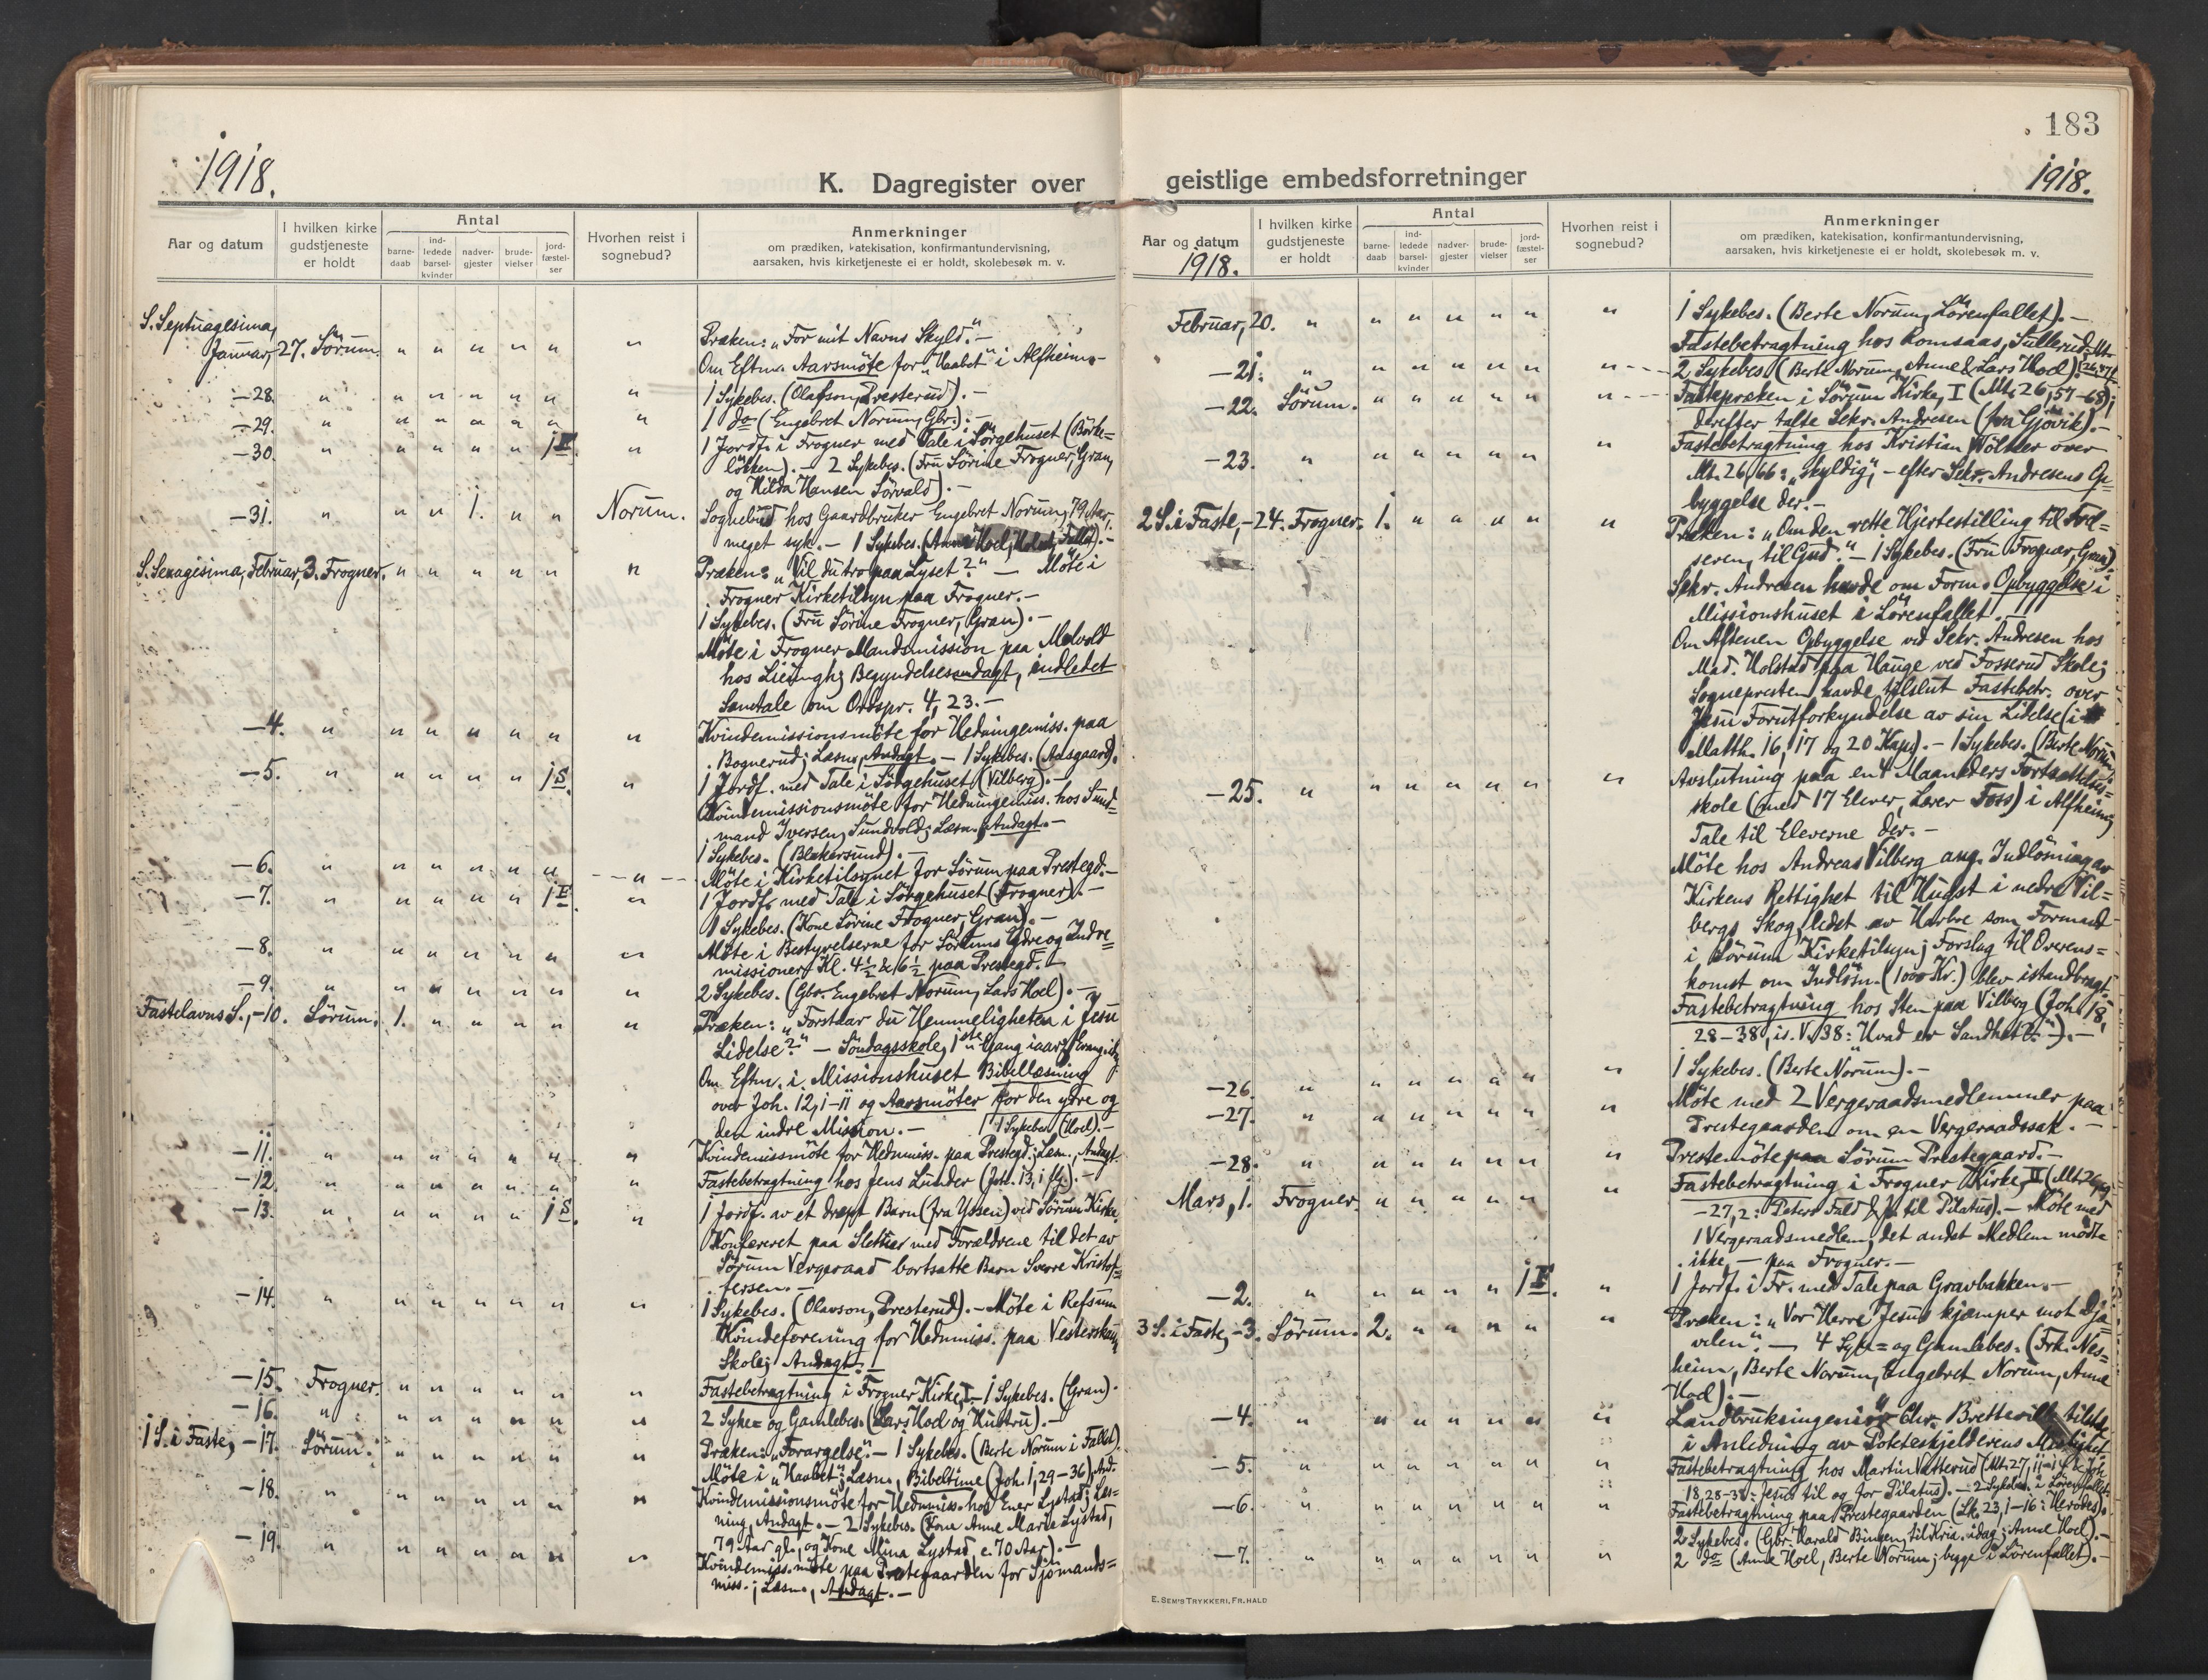 183
1918.
1918.
K. Dagregister over geistlige embedsforretninger
Aar og datum
I hvilken kirke gudstjeneste er holdt
Antal
barne-daab
ind-ledede barsel-kvinder
nadver-gjester
brude-vielser
jord-fæstel-ser
Hvorhen reist i sognebud?
Anmerkninger
om prædiken, katekisation, konfirmantundervisning,
aarsaken, hvis kirketjeneste ei er holdt, skolebesøk m. v.
S. Septuagesima,
Januar, 27. Sörum. " " " " " " Præken: „For mit Navns Skyld.” –
Om Eftm. Aarsmöte for „Haabet” i Alfheim. –
–28. " " " " " " " 1 Sykebes. (Olafson, Presterud). –
–29. " " " " " " " 1 do (Engebret Norum, Gbr.). –
–30. " " " " " 1 F. " 1 Jordf. i Frogner med Tale i Sörgehuset (Börke=
lökken). – 2 Sykebes. (Fru Sörine Frogner, Gran,
og Hilda Hansen Sörvald). –
–31. " " " 1. " " Norum. Sognebud hos Gaardbruker Engebret Norum, 79 Aar,
meget syk. – 1 Sykebes. (Anne Hoel,
S. Sexagesima, Februar, 3. Frogner. " " " " " " Præken: „Vil du tro paa Lyset?” – Möte i
Frogner Kirketilsyn paa Frogner. –
1 Sykebes. (Fru Sörine Frogner, Gran). –
Möte i Frogner Mandsmission paa Melvold
hos Liëungh; Begyndelsesandagt, indledet
Samtale om Ordspr. 4, 23. –
–4. " " " " " " " Kvindemissionsmöte for Hedningemiss. paa
Bognerud; Læsn., Andagt. – 1 Sykebes. (Aalsgaard).
–5. " " " " " 1 S. " 1 Jordf. med Tale i Sörgehuset (Vilberg). –
Kvindemissionsmöte for Hedningemiss. hos Sund=
mand Iversen, Sundvold; Læsn., Andagt. –
1 Sykebes. (Blakersund). –
–6. " " " " " " – – " – – Möte i Kirketilsynet for Sörum paa Prestegd. –
–7. " " " " " 1 F. " 1 Jordf. med Tale i Sörgehuset (Frogner). –
1 Sykebes. (Kone Sörine Frogner, Gran). –
–8. " " " " " " " Möte i Bestyrelserne for Sörums Ydre og Indre=
missioner Kl. 4½ & 6½ paa Prestegd. –
–9. " " " " " " " 2 Sykebes. (Gbr. Engebret Norum, Lars Hoel). –
Fastelavns S., –10. Sörum. 1. " " " " " Præken: „Forstaar du Hemmeligheten i Jesu
Lidelse?” – Söndagsskole, 1ste Gang iaar,
Om Eftm. i Missionshuset Bibellæsning
over Joh. 12, 1–11 og Aarsmöter for den ydre og
den indre Mission. – 1 Sykebes. (Hoel). –
–11. " " " " " " " Kvindemissmöte for Hedmiss. paa Prestegd.; Læsn., Andagt.
–12. " " " " " " " Fastebetragtning hos Jens Lunder (Joh. 13, 1 flg.). –
–13. " " " " " 1 S. " 1 Jordf. av et dræpt Barn (fra Yssen) ved Sörum Kirke.
Konfereret paa Sletner med Forældrene til det av
Sörum Vergeraad bortsatte Barn Sverre Kristof=
fersen. –
–14. " " " " " " " 1 Sykebes. (Olavson, Presterud). – Möte i Refsum
Kvindeforening for Hedmiss. paa Vesterskaun
Skole; Andagt. –
–15. Frogner. " " " " " " Fastebetragtning i Frogner Kirke, I. – 1 Sykebes. (Gran).
–16. " " " " " " " 2 Syke= og Gamlebes. (Lars Hoel og Hustru). –
1 S. i Faste, –17. Sörum. " " " " " " Præken: „Forargelse”. – 1 Sykebes. (Berte Norum i Fallet).
Möte i „Haabet”; Læsn., Bibeltime (Joh. 1, 29–36), And.
–18. " " " " " " " Kvindemissionsmöte for Hedmiss. hos Ener Lystad; Læs=
ning, Andagt. – 2 Sykebes. (Kone Anne Marie Lystad,
79 Aar gl., og Kone Mina Lystad c. 70 Aar). –
–19. " " " " " " " Kvindemiss.möte paa Prestegaarden for Sjömands=
miss.; Læsn., Andagt. –
Aar og datum
1918.
I hvilken kirke gudstjeneste er holdt
Antal
barne-daab
ind-ledede barsel-kvinder
nadver-gjester
brude-vielser
jord-fæstel-ser
Hvorhen reist i sognebud?
Anmerkninger
om prædiken, katekisation, konfirmantundervisning,
aarsaken, hvis kirketjeneste ei er holdt, skolebesøk m. v.
Februar, 20. " " " " " " " 1 Sykebes. (Berte Norum, Lörenfallet). –
Fastebetragtning hos Romsaas, Sullerud, Mt.
–21. " " " " " " " 2 Sykebes. (Berte Norum, Anne & Lars Hoel)
–22. Sörum. " " " " " " Fastepræken i Sörum Kirke, I (Mt. 26, 57–68);
derefter talte Sekr. Andresen (fra Gjövik). –
–23. " " " " " " " Fastebetragtning hos Kristian Wölner over
Mt. 26, 66: „skyldig”, – efter Sekr. Andresens Op=
byggelse der. –
2 S. i Faste, –24. Frogner. 1. " " " " " Præken: „Om den rette Hjertestilling til Frel=
seren, til Gud.” – 1 Sykebes. (Fru Frogner, Gran).
Sekr. Andresen havde om Form. Opbyggelse i
Missionshuset i Lörenfallet. –
Om Aftenen Opbyggelse ved Sekr. Andresen hos
Mad. Holstad paa Hauge ved Fosserud Skole;
Sognepresten havde tilslut Fastebetr. over
Jesu Forutforkyndelse av sin Lidelse (i
Matth. 16, 17 og 20 Kap.). – 1 Sykebes. (Berte Norum).
–25. " " " " " " " Avslutning paa en 4 Maaneders Fortsættelses=
skole (med 17 Elever, Lærer Foss) i Alfheim;
Tale til Eleverne der. –
Möte hos Andreas Vilberg ang. Indlösning av
Kirkens Rettighet til Hugst i nedre Vil=
bergs Skog, ledet av Horbre som Formand
i Sörum Kirketilsyn; Forslag til Overens=
komst om Indlösn. (1000 Kr.) blev istandbragt.
Fastebetragtning hos Sten paa Vilberg (Joh. 18,
28–38, is. V. 38: „Hvad er Sandhet?” –). –
–26. " " " " " " " 1 Sykebes. (Berte Norum). –
–27. " " " " " " " Möte med 2 Vergeraadsmedlemmer paa
Prestegaarden om en Vergeraadssak. –
–28. " " " " " " " Prestemöte paa Sörum Prestegaard. –
Mars, 1. Frogner. " " " " " " Fastebetragtning i Frogner Kirke, II (Mt. 26,
–27, 2: Peters Fald & J. til Pilatus). – Möte med
1 Vergeraadsmedlem, det andet Medlem mödte
ikke, – paa Frogner. –
–2. " " " " " 1 F. " 1 Jordf. i Fr. med Tale paa Gravbakken. –
3 S. i Faste, –3. Sörum. 2. " " " " " Præken: „Vor Herre Jesus kjæmper mot Djæ=
velen”. – 4 Syke= og Gamlebes. (Frk. Nes=
heim, Berte Norum, Engebret Norum, Anne
Hoel). –
–4. " " " " " " " Landbruksingeniör Chr. Bretteville tilstede
i Anledning av Poteteskjelderens
–5. " " " " " " " Fastebetragtning hos Martin Vatterud (Mt. 27, 11–14 & Joh.
18, 28–38: Jesus til og for Pilatus). – 2 Sykebes. i Lörenfallet.
–6. " " " " " " " Fastebetragtning paa Prestegaarden (Lk. 23, 1–16: Herodes).
2 Sykebes. (Gbr. Harald Bingen, til Kria. idag; Anne Hoel). –
–7. " " " " " " " 2 do (Anne Hoel, Berte Norum; begge i Lörenfallet). –
E. SEM'S TRYKKERI, FR. HALD